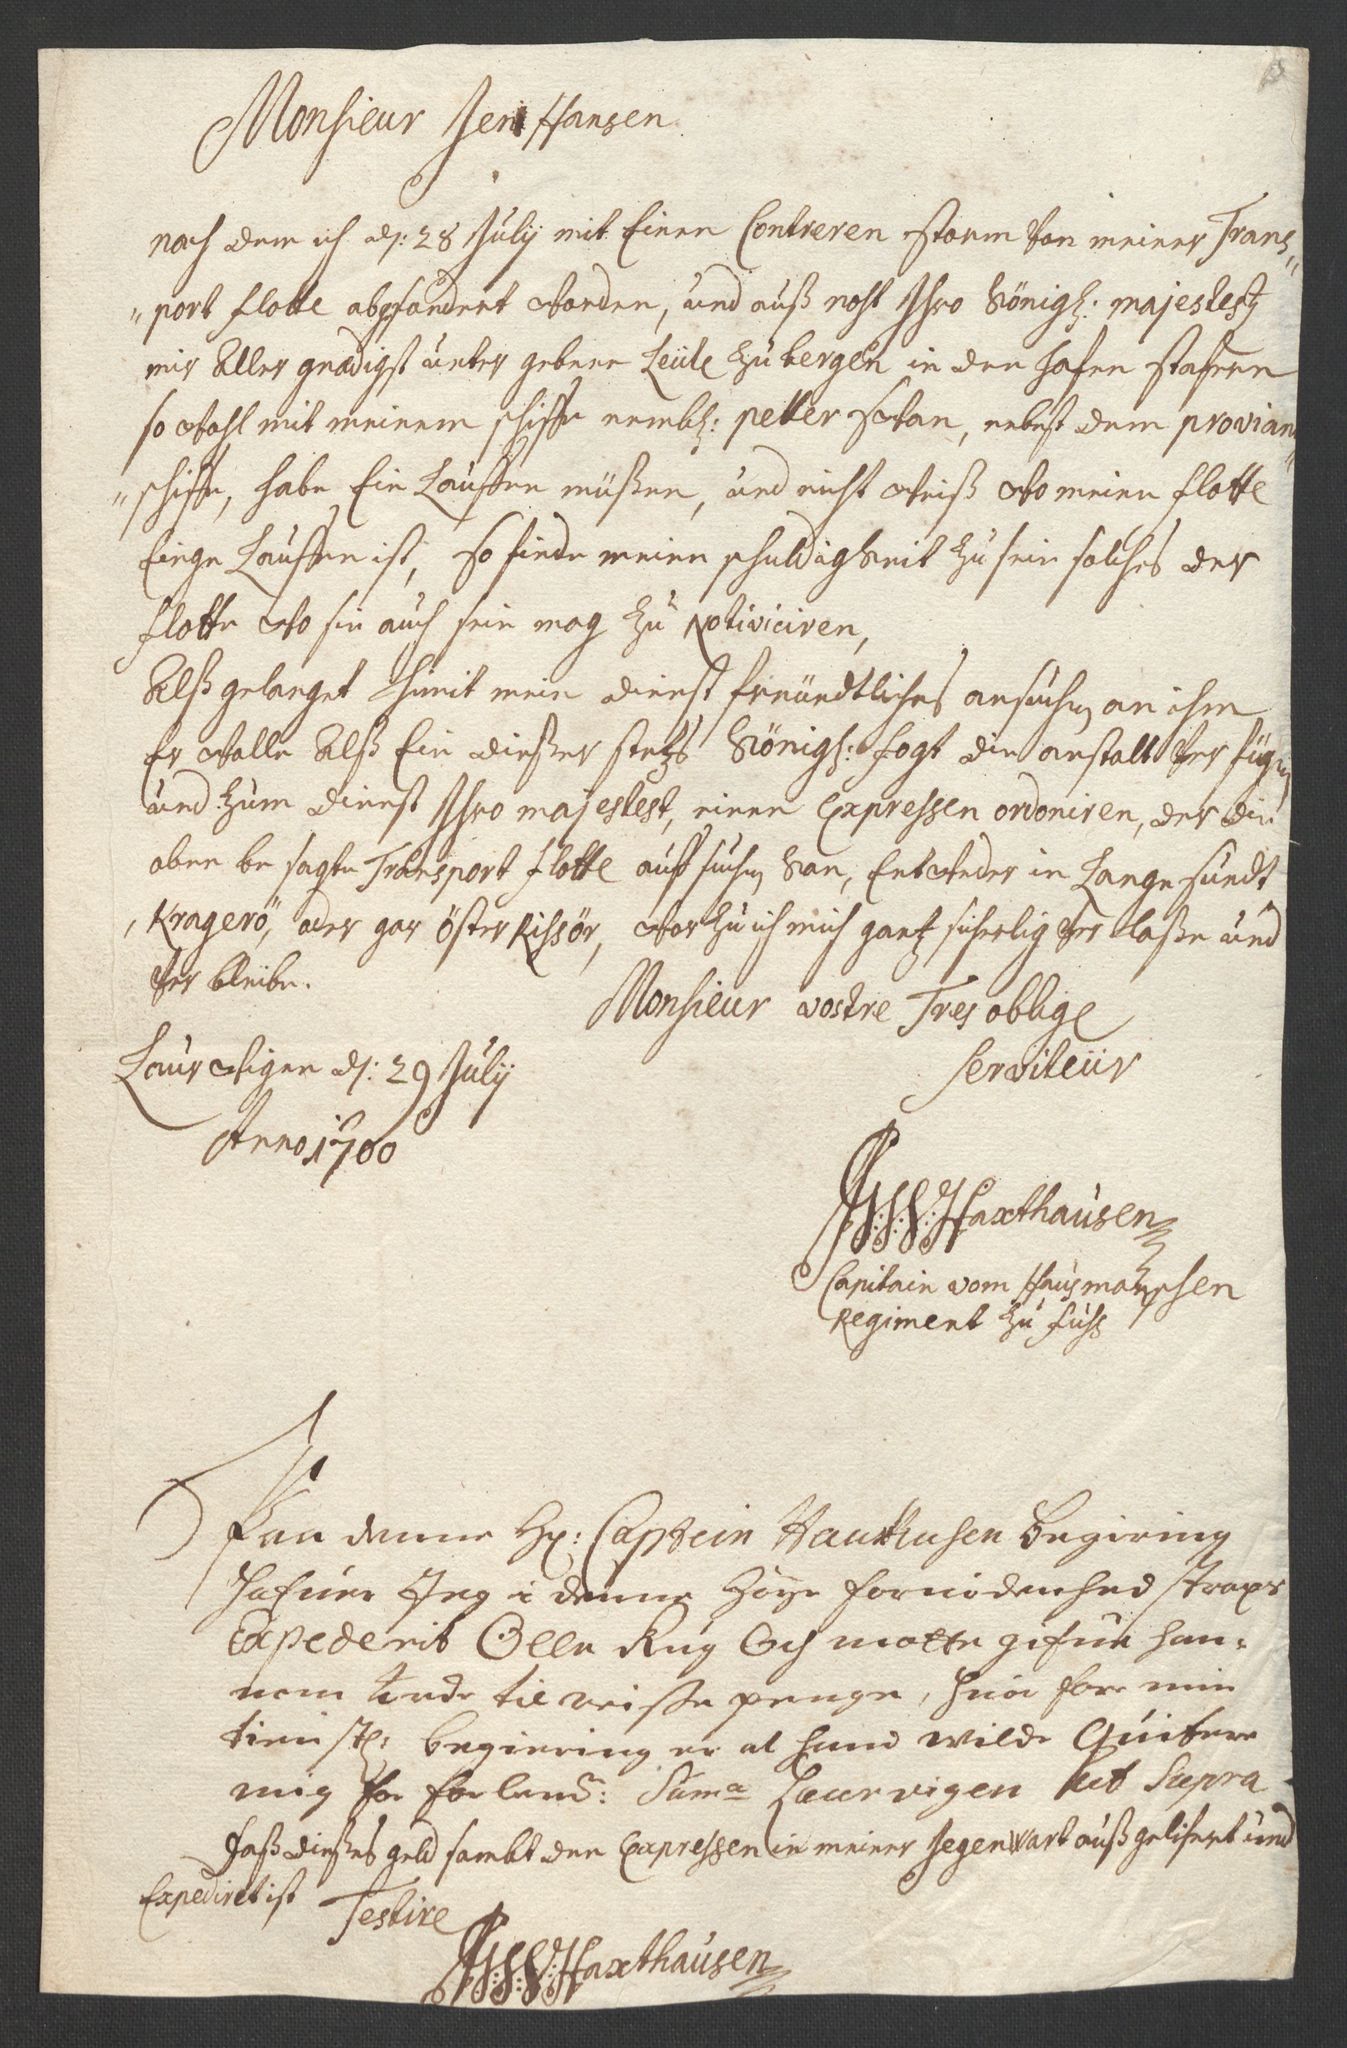 Monsieur Jens Hansen
nach dem ich d: 28 Julij mit Einen Contreren storm von meiner Trans=
"port flotte abgesondert worden, und auß noht Ihro Königl: majestest
mir Aller gnädigst unter gebene Leüte zu bergen in den hafen stafern
so wohl mit meinem schiffe nembl: petter Swan, nebest dem provian=
"schiffe, habe Ein Lauffen müßen, und nicht weiß wo meine flotte
Einge Lauffen ist, so finde meine schuldigkeit zu sein solches der
flotte wo sie auch sein mag zu Notiviciren,
Alß gelanget himit mein dienst freündtliches ansuchen an ihm
Er wolle Alß Ein dießer stets Königl: fogt die anstalt ver fügen
und zum dienst Ihro majestest, einen Expressen ordoniren, der die
oben be sagte Transport flotte auff suchen kan, Entweder in Lange sundt
Kragerö, oder gar öster Rissör, wor zu ich mich gantz sicherlig ver laße und
ver bleibe.
Monsieur vostre Tres oblige
Serviteür
Laur wigen d: 29 Julij
Anno 1700
Haxthausen
Capitain vom Hausmanschen
Regiment zu fuhs
Paa denne Hr: Captein Hauxthusen Begiering
Hafuer Jeg i denne Höye fornödenhed straxs
Expederit Olle Kug Och motte gifue han=
nem til reisse penge, huor fore min
tienstl: begiering er at hand wilde Quitere
mig for forlend: Suma Laurvigen Ut Supra
daß dießes geld sambt den Expressen in meiner Jegenwart auß gelifert und
Expediret ist Testire
Haxthausen